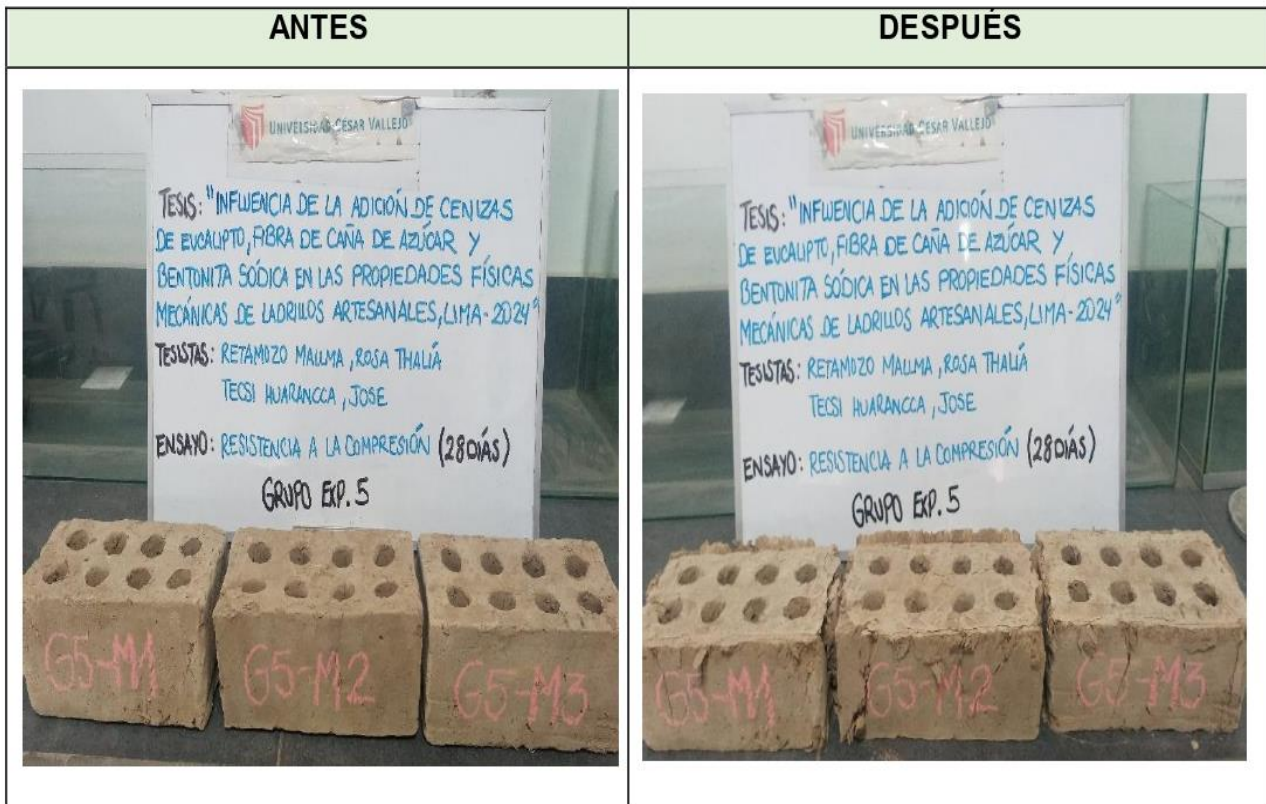 ANTES
DESPUÉS
UNIVERSIDAD CÉSAR VALLEJO
TESIS: "INFLUENCIA DE LA ADICIÓN DE CENIZAS
DE EUCALIPTO, FIBRA DE CAÑA DE AZÚCAR Y
BENTONITA SÓDICA EN LAS PROPIEDADES FÍSICAS
MECÁNICAS DE LADRILLOS ARTESANALES, LIMA-2024"
TESISTAS: RETAMOZO MALLMA, ROSA THALIÁ
TECSI HUARANCCA, JOSE
ENSAYO: RESISTENCIA A LA COMPRESIÓN (28 DÍAS)
GRUPO EXP. 5
G5-M1
G5-M2
G5-M3
UNIVERSIDAD CÉSAR VALLEJO
TESIS: "INFLUENCIA DE LA ADICIÓN DE CENIZAS
DE EUCALIPTO, FIBRA DE CAÑA DE AZÚCAR Y
BENTONITA SÓDICA EN LAS PROPIEDADES FÍSICAS
MECÁNICAS DE LADRILLOS ARTESANALES, LIMA-2024"
TESISTAS: RETAMOZO MALLMA, ROSA THALIÁ
TECSI HUARANCCA, JOSE
ENSAYO: RESISTENCIA A LA COMPRESIÓN (28 DÍAS)
GRUPO EXP. 5
G5-M1
G5-M2
G5-M3